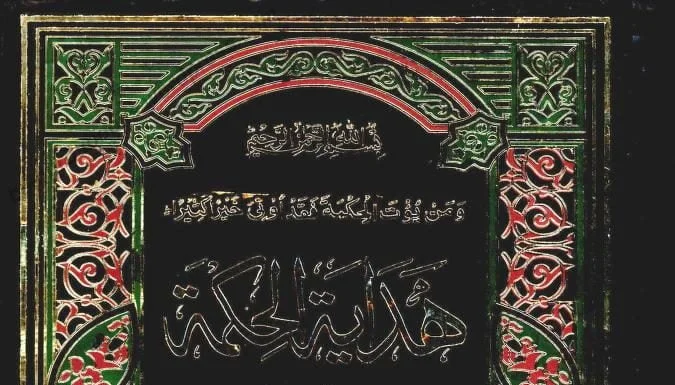 بِسْمِ اللهِ الرَّحْمٰنِ الرَّحِيْمِ
وَمَنْ يُّؤْتَ الْحِكْمَةَ فَقَدْ أُوْتِيَ خَيْرًا كَثِيْرًا
هَدَايَةُ الْحِكْمَة